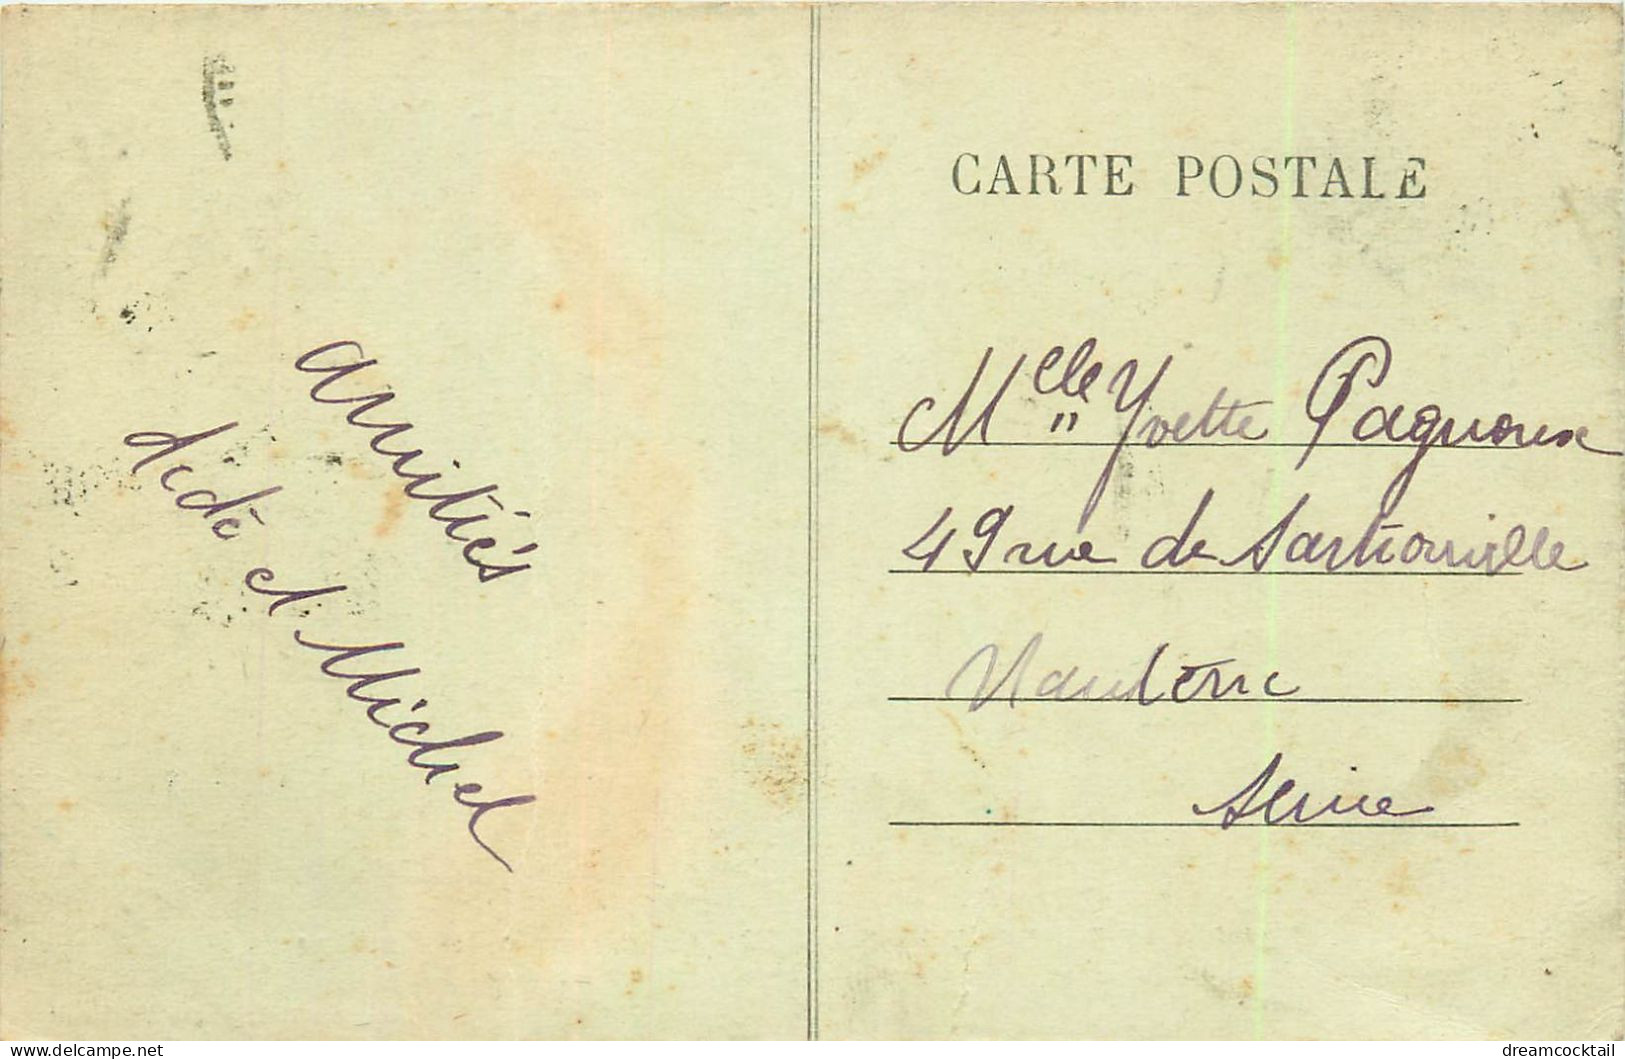 amitiés
dédé et Michel
CARTE POSTALE
Melle Yvette Pagnoux
49 rue de Sartrouville
Nanterre
Seine
www.delcampe.net
dreamcocktail